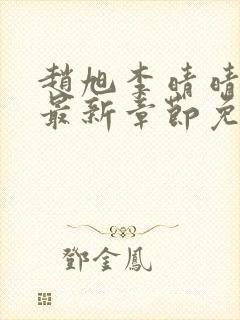 趙旭李晴晴
最新章節免
鄧金鳳